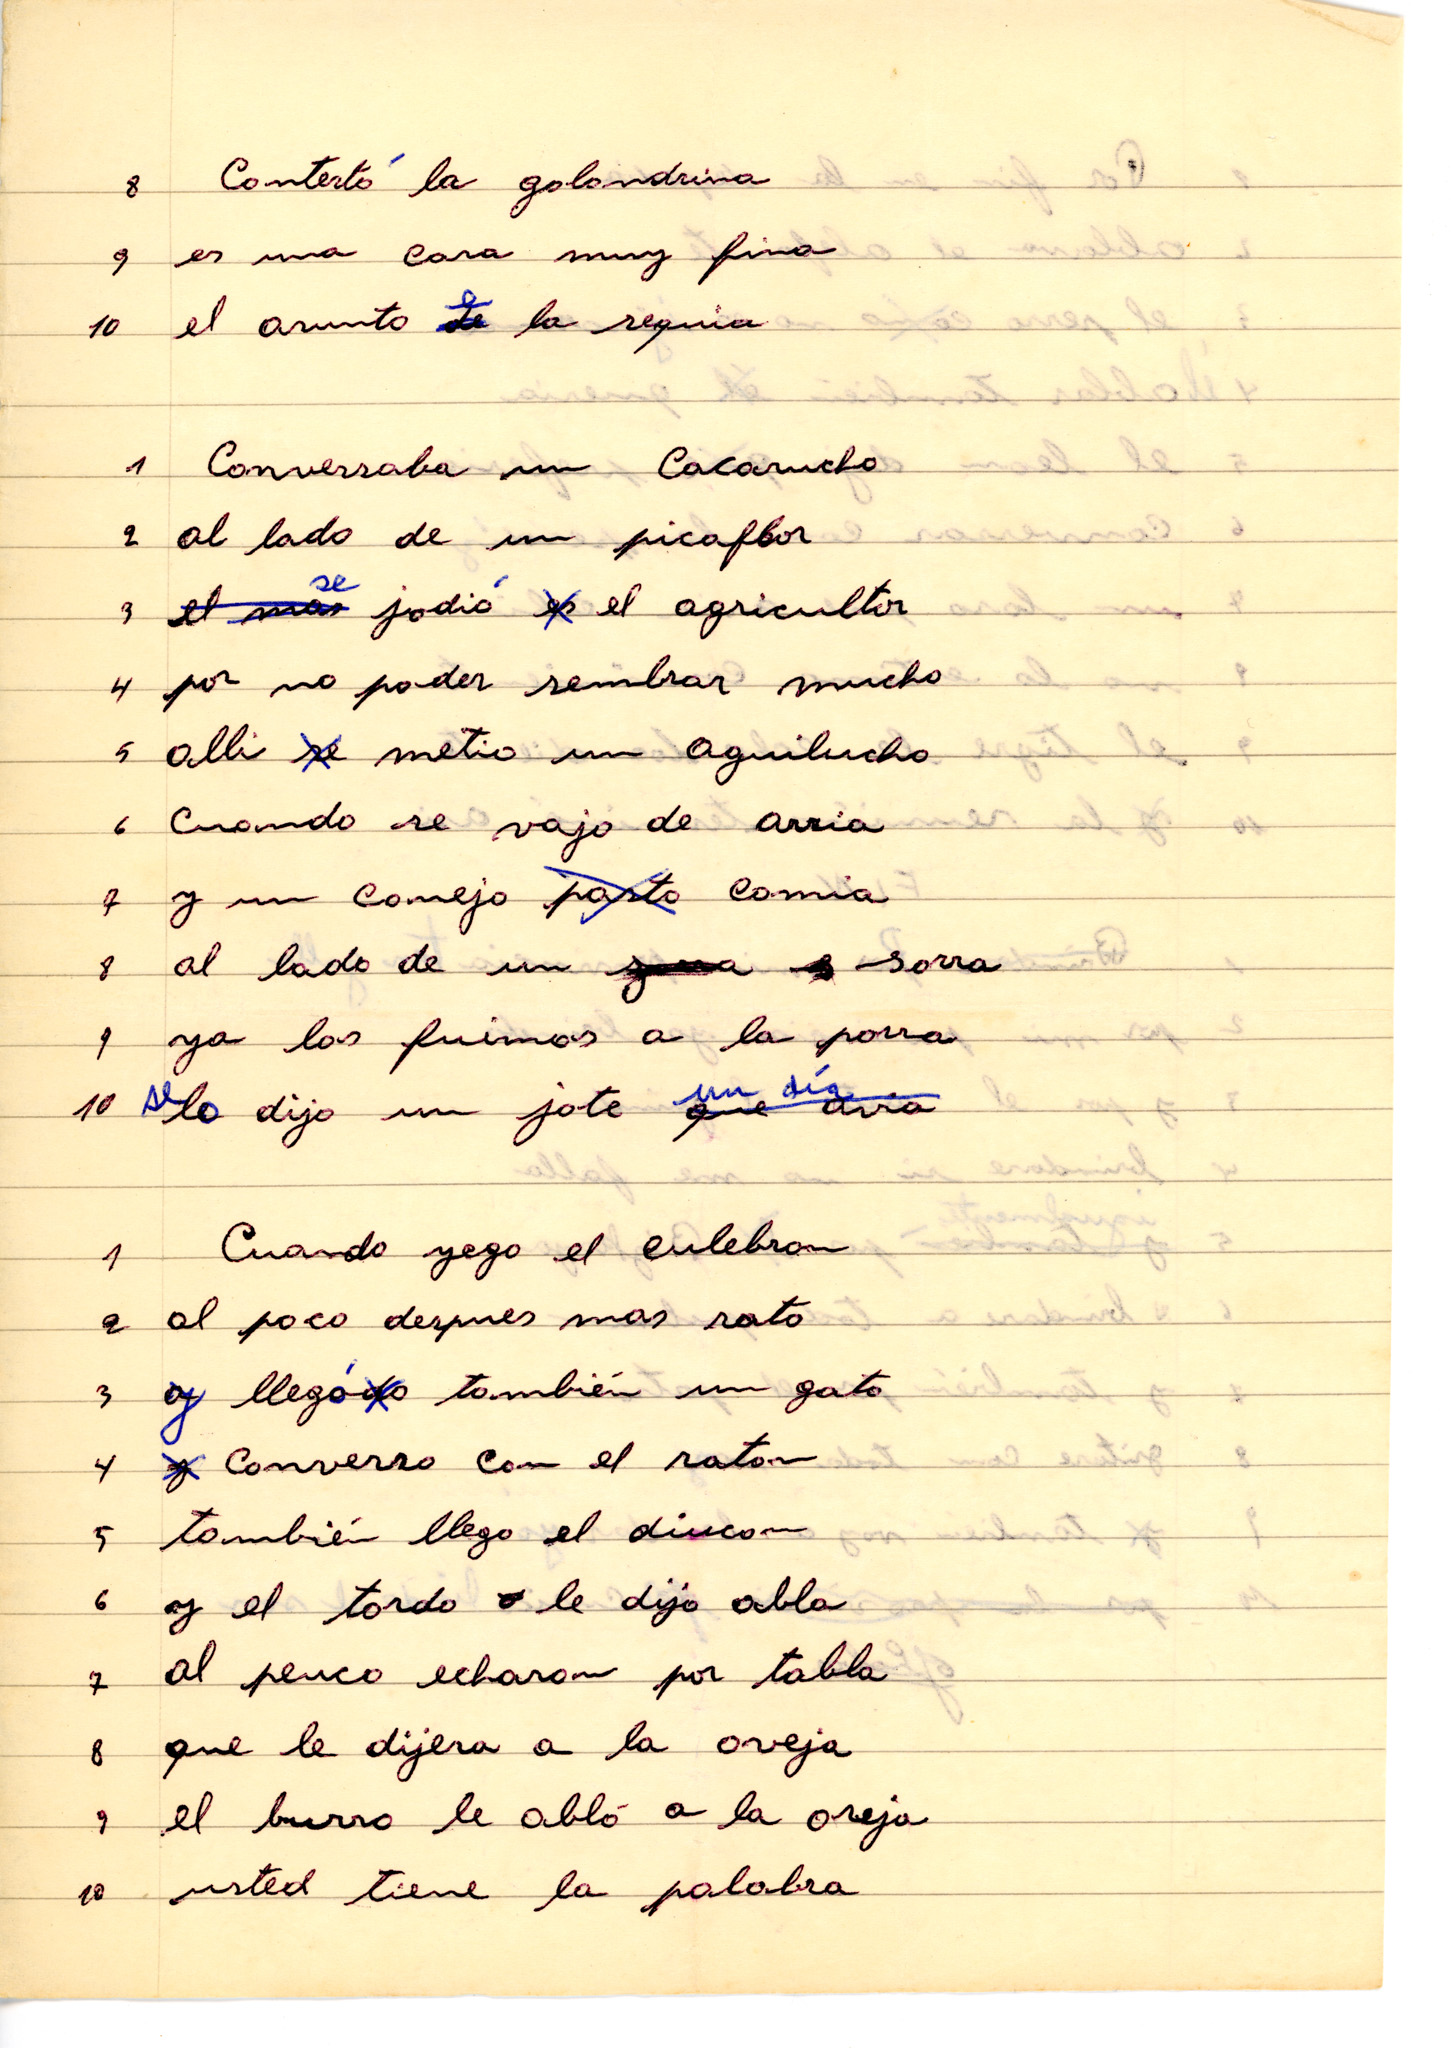 8 Contestó la golondrina
9 es una cosa muy fina
10 el asunto e la sequia
1 Conversaba un Cacarucho
2 al lado de un picaflor
3 el mas se jodió es el agricultor
4 por no poder sembrar mucho
5 alli se metio un aguilucho
6 Cuando se vajo de arria
7 y un conejo pasto comia
8 al lado de un sorra
9 ya los fuimos a la porra
10 se lo dijo un jote que avia un día
1 Cuando yego el culebron
2 al poco despues mas rato
3 y llegó do también un gato
4 y converso con el raton
5 también llego el diucon
6 y el tordo le dijo abla
7 al peuco echaron por tabla
8 que le dijera a la oveja
9 el burro le abló a la oreja
10 usted tiene la palabra